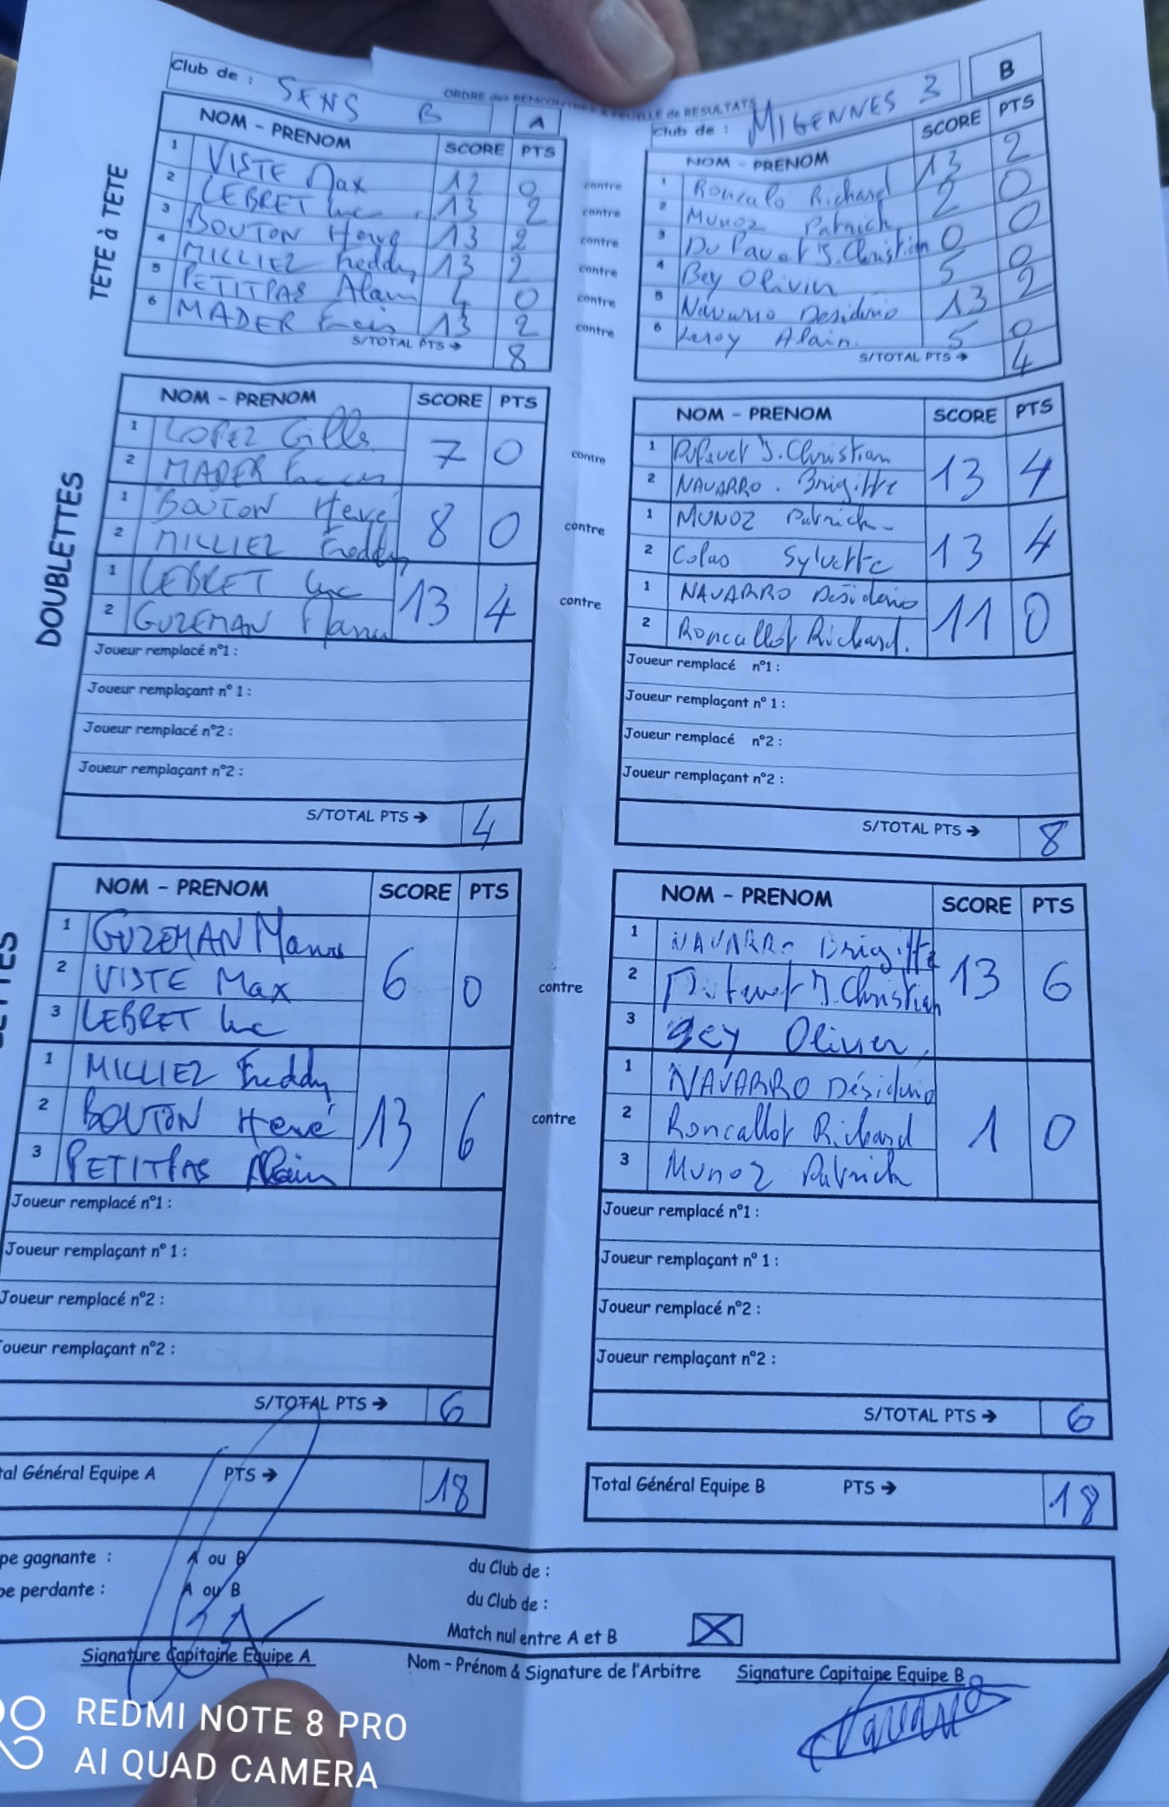 ORDRE des RENCONTRES & FEUILLE de RESULTATS
Club de : SENS B A
TETE à TETE
NOM - PRENOM SCORE PTS
1 VISTE Max 12 0
2 LEBRET Luc 13 2
3 BOUTON Hervé 13 2
4 MILLIEZ Freddy 13 2
5 PETITPAS Alain 4 0
6 MADER 13 2
S/TOTAL PTS → 8
contre
contre
contre
contre
contre
contre
Club de : MIGENNES 3 B
NOM - PRENOM SCORE PTS
1 Roncalo Richard 13 2
2 Munoz Patrick 2 0
3 Du Pavot J.Christian 0 0
4 Bey Olivier 5 0
5 Navarro Desidério 13 2
6 Leroy Alain. 5 0
S/TOTAL PTS → 4
DOUBLETTES
NOM - PRENOM SCORE PTS
1 LOPEZ Gilles 7 0
2 MADER
1 BOUTON Hervé 8 0
2 MILLIEZ Freddy
1 LEBRET Luc 13 4
2 GUZEMAN Manu
Joueur remplacé n°1 :
Joueur remplaçant n° 1 :
Joueur remplacé n°2 :
Joueur remplaçant n°2 :
S/TOTAL PTS → 4
contre
contre
contre
NOM - PRENOM SCORE PTS
1 J.Christian 13 4
2 NAVARRO. Brigitte
1 MUNOZ Patrick 13 4
2 Colas Sylvette
1 NAVARRO Désidério 11 0
2 Roncallot Richard.
Joueur remplacé n°1 :
Joueur remplaçant n° 1 :
Joueur remplacé n°2 :
Joueur remplaçant n°2 :
S/TOTAL PTS → 8
ETTES
NOM - PRENOM SCORE PTS
1 GUZEMAN Manu 6 0
2 VISTE Max
3 LEBRET Luc
1 MILLIEZ Freddy 13 6
2 BOUTON Hervé
3 PETITPAS Alain
Joueur remplacé n°1 :
Joueur remplaçant n° 1 :
Joueur remplacé n°2 :
oueur remplaçant n°2 :
S/TOTAL PTS → 6
contre
contre
NOM - PRENOM SCORE PTS
1 NAVARRO Brigitte 13 6
2 J.Christian
3 Bey Olivier
1 NAVARRO Désidério 1 0
2 Roncallot Richard
3 Munoz Patrick
Joueur remplacé n°1 :
Joueur remplaçant n° 1 :
Joueur remplacé n°2 :
Joueur remplaçant n°2 :
S/TOTAL PTS → 6
tal Général Equipe A PTS → 18
Total Général Equipe B PTS → 18
pe gagnante : A ou B du Club de :
pe perdante : A ou B du Club de :
Match nul entre A et B
Signature Capitaine Equipe A
Nom - Prénom & Signature de l'Arbitre
Signature Capitaine Equipe B
REDMI NOTE 8 PRO
AI QUAD CAMERA